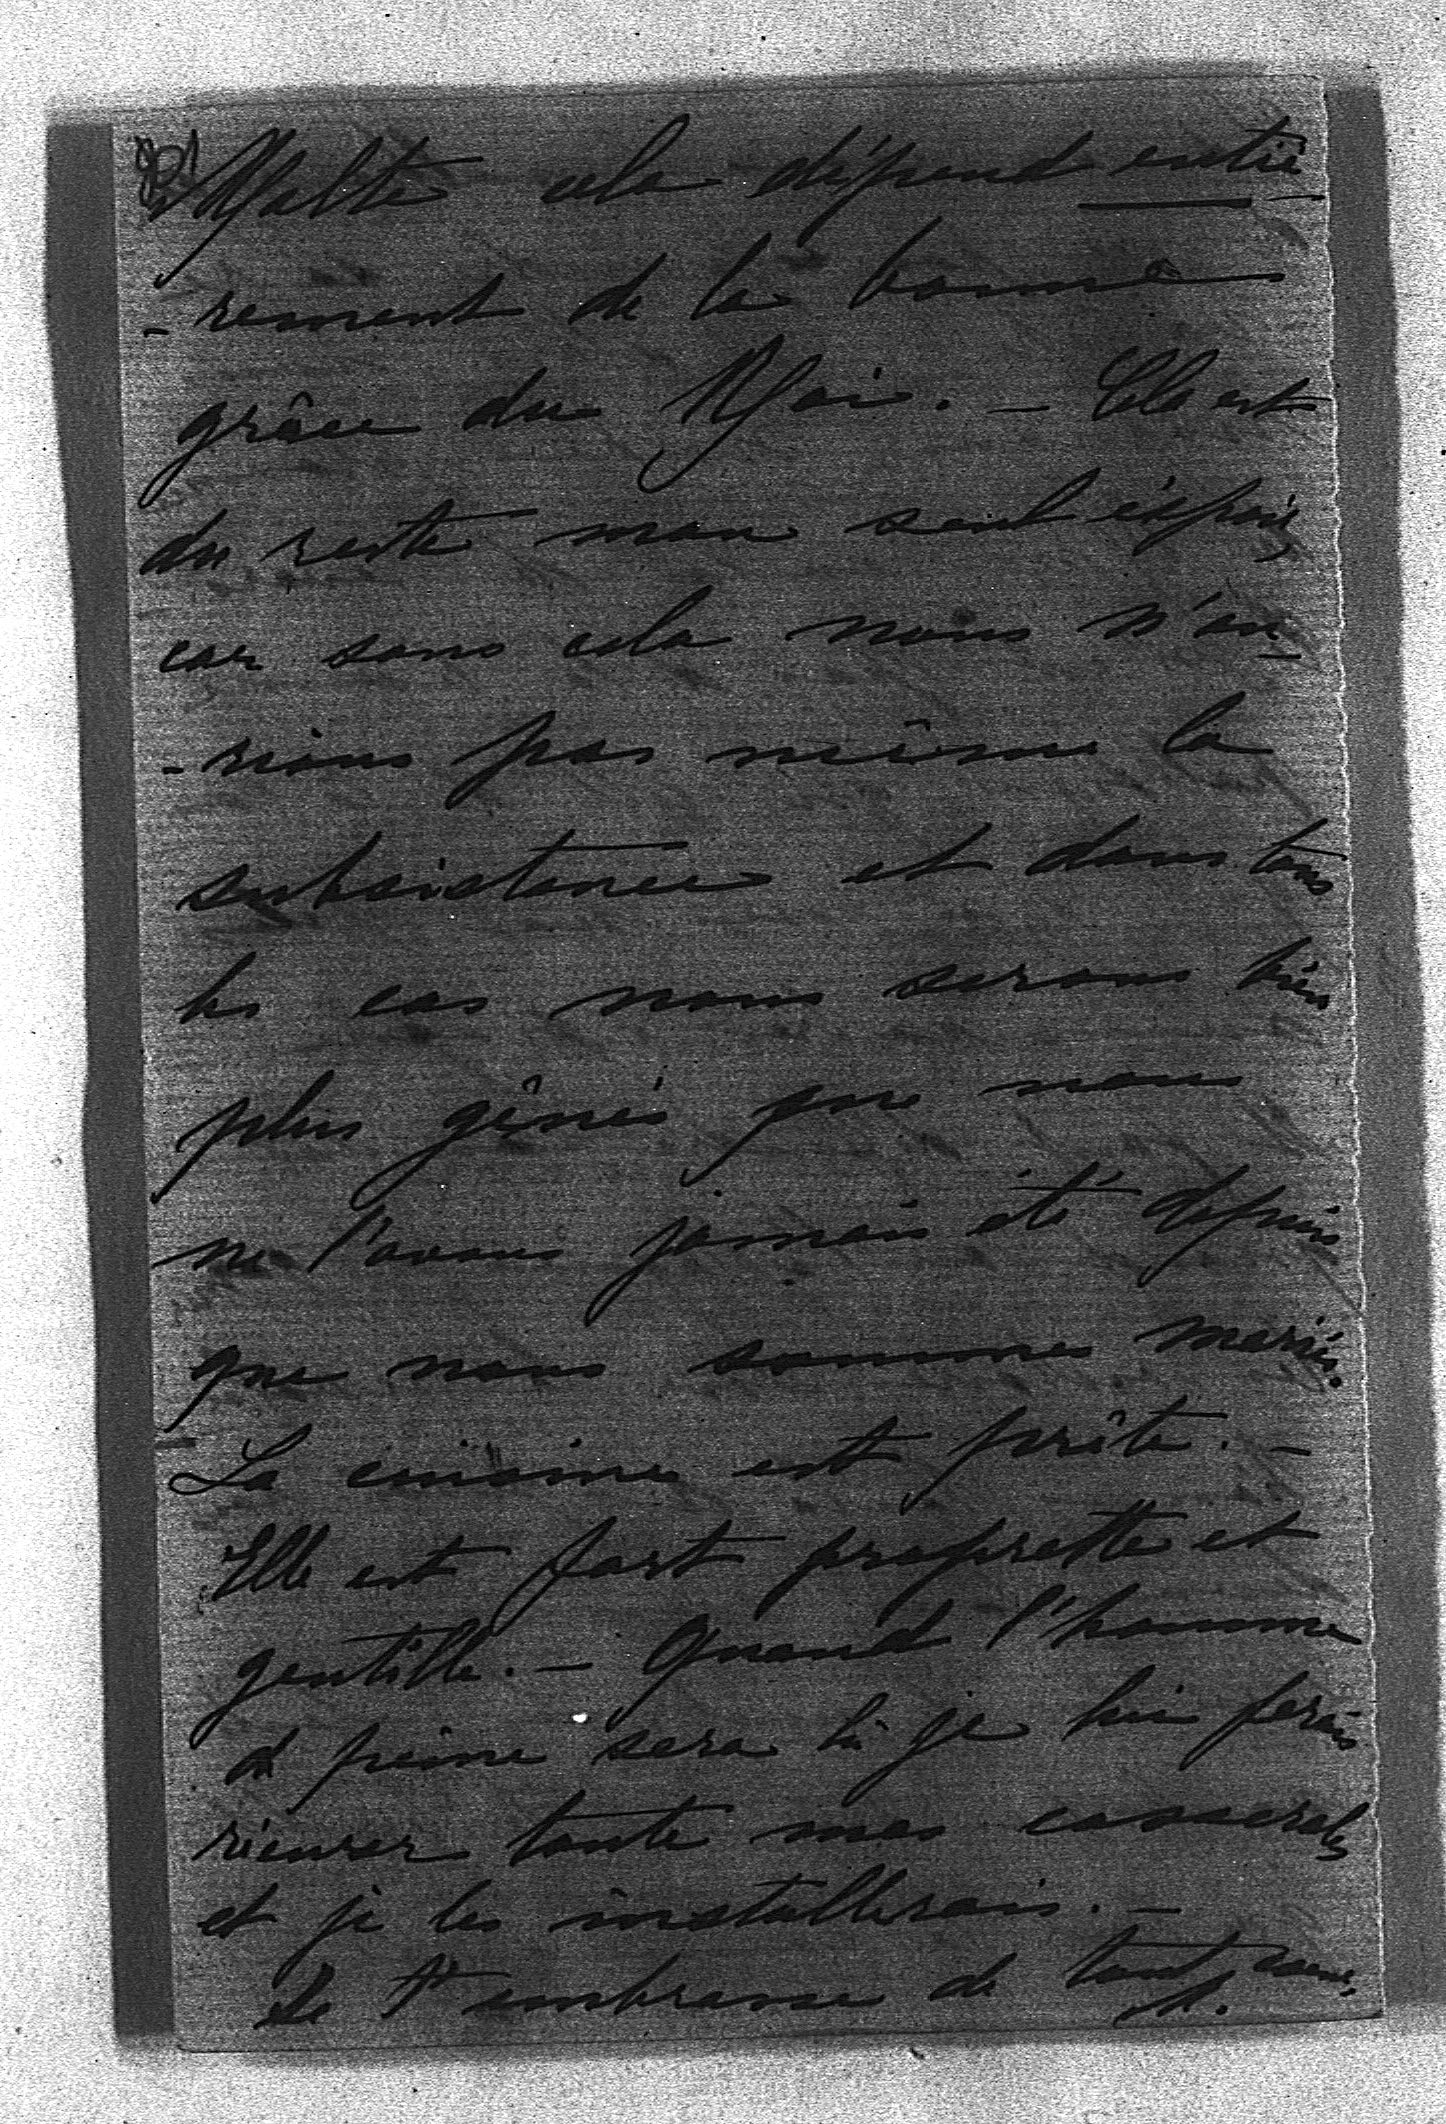 Malte cela dépend entiè-
-rement de la bonne
grâce du Roi. — Elle est
du reste mon seul éspoir,
car sans cela nous n'au-
-rions pas même la
subsistence et dans tous
les cas nous serons bien
plus gênés que nous
ne l'avons jamais été depuis
que nous sommes mariés.
La cuisine est prête. —
Elle est fort proprette et
gentille. — Quand l'homme
de peine sera là je lui ferais
récurer toute mes casseroles
et je les installerais. —
Je t'embrasse de tout cœur,
A.